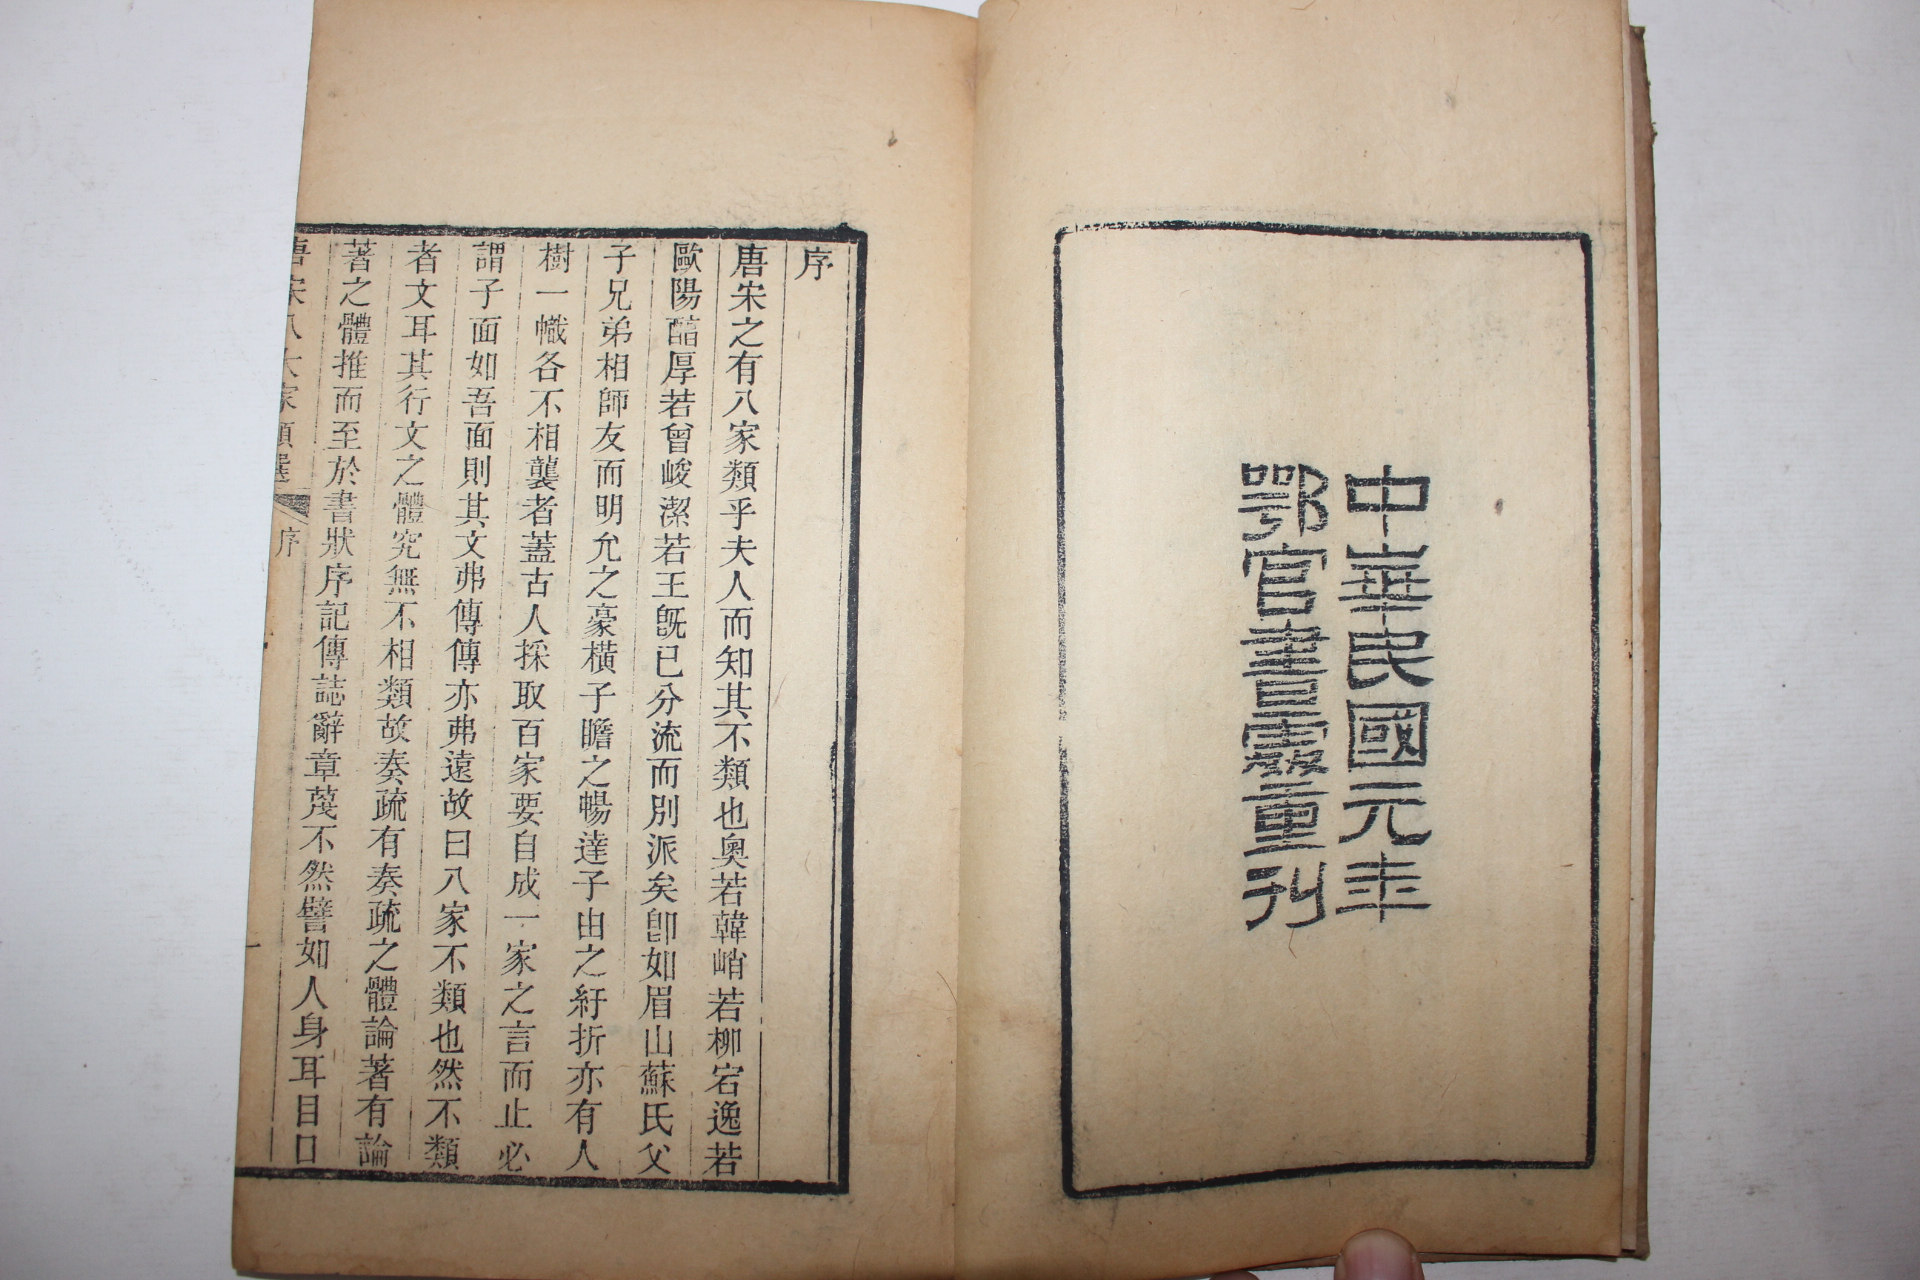 中華民國元年
鄂官書處重刊
序
唐宋之有八家類乎夫人而知其不類也奧若韓峭若柳宕逸若
歐陽醇厚若曾峻潔若王旣已分流而別派矣卽如眉山蘇氏父
子兄弟相師友而明允之豪橫子瞻之暢達子由之紆折亦有人
樹一幟各不相襲者蓋古人採取百家要自成一家之言而止必
謂子面如吾面則其文弗傳傳亦弗遠故曰八家不類也然不類
者文耳其行文之體究無不相類故奏疏有奏疏之體論著有論
著之體推而至於書狀序記傳誌辭章蔑不然譬如人身耳目口
唐宋八大家類選
序
一